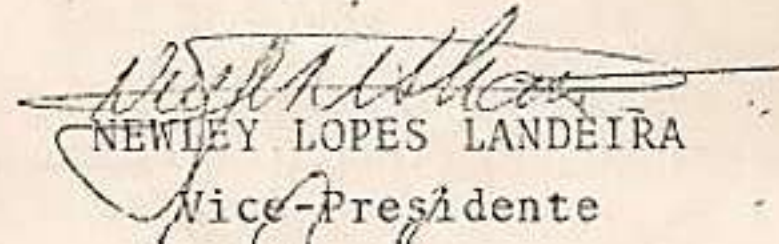 NEWLEY LOPES LANDEIRA
Vice-Presidente